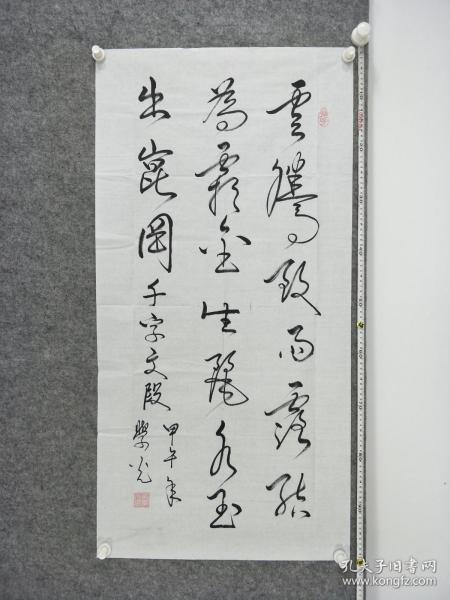 雲騰致雨露結
為霜金生麗水玉
出崑岡千字文段
甲午年
學光
孔夫子旧书网
www.kongfz.com